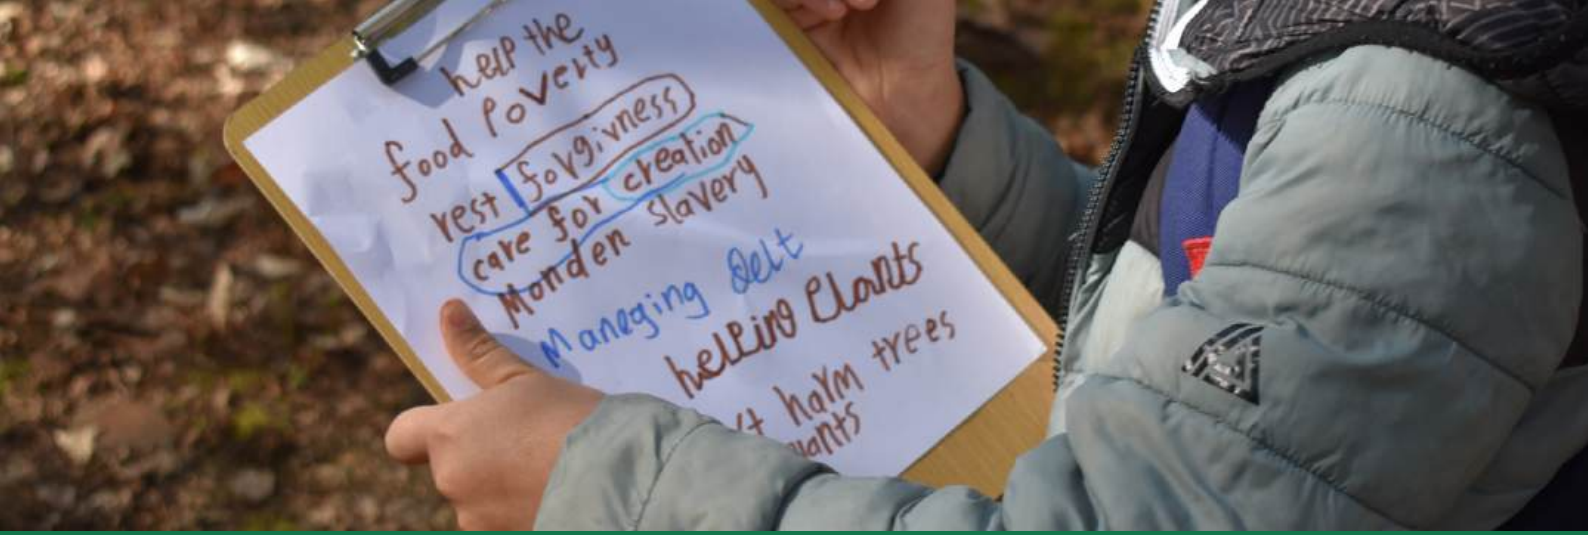 help the
food Poverty
rest forgivness
care for creation
Monden slavery
Maneging Delt
helping Plants
harm trees